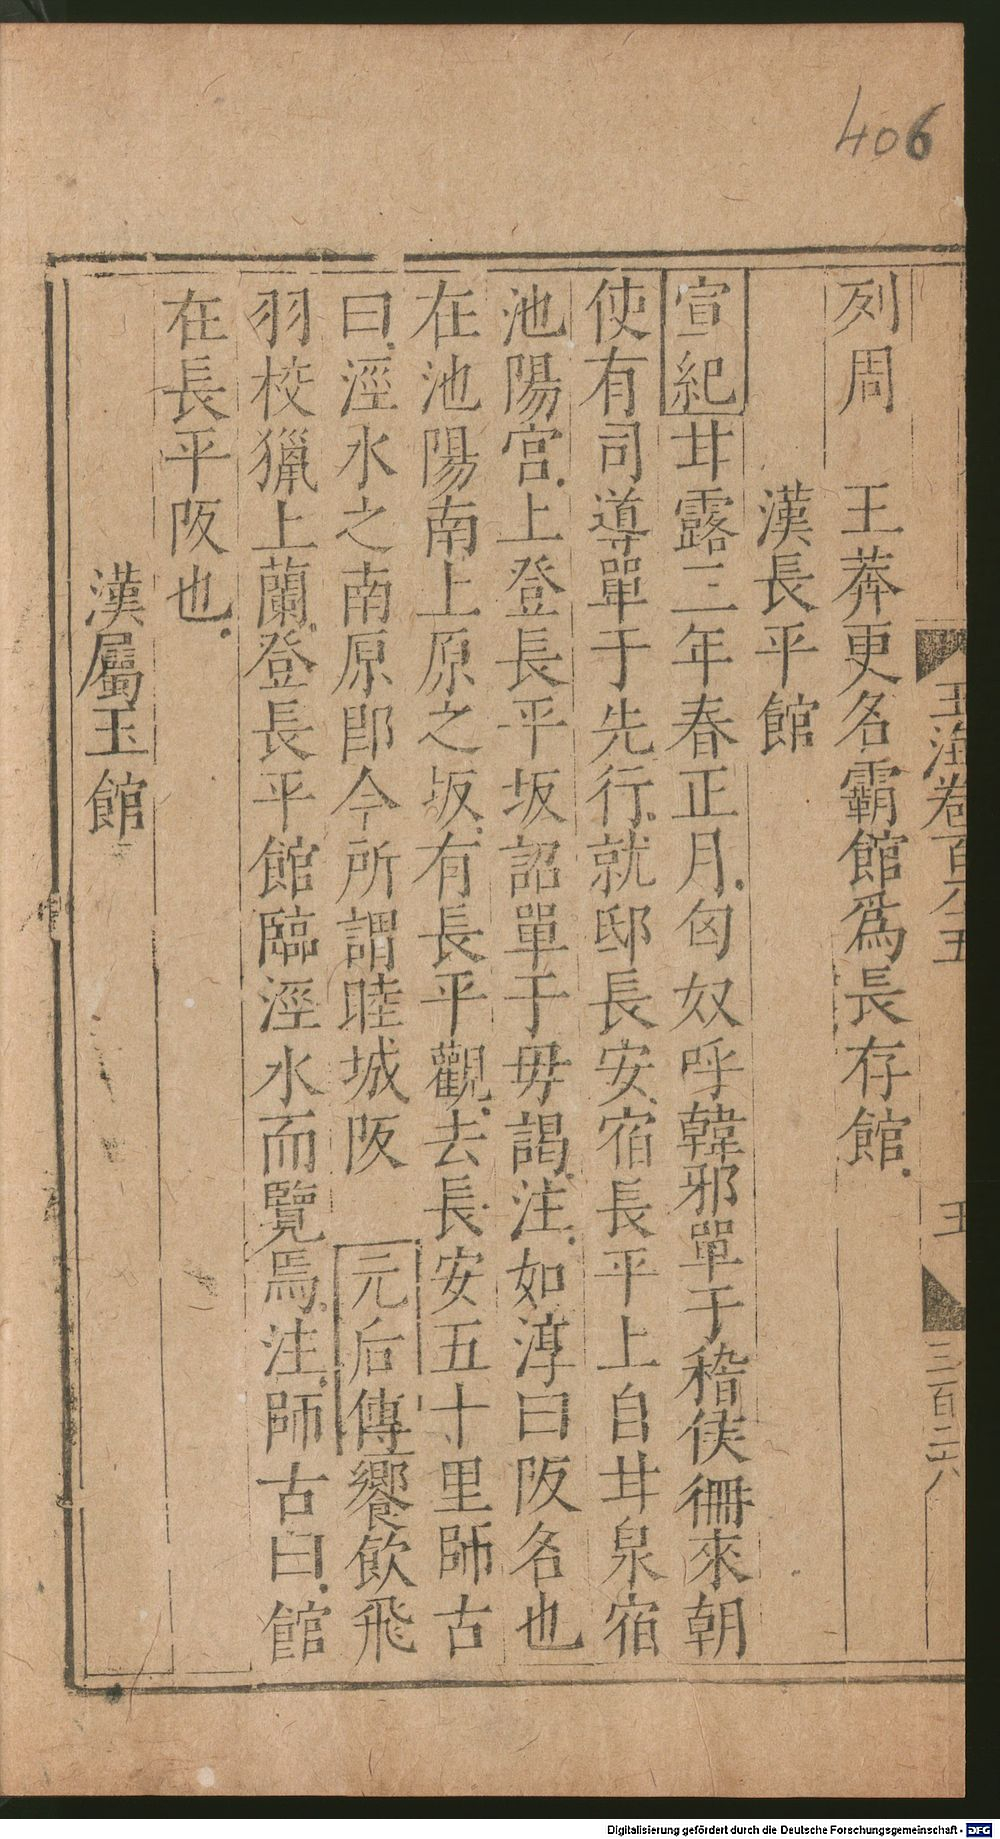 406
玉海卷百六五
五
三百二六
列周　王莽更名霸館爲長存館
漢長平館
宣紀甘露三年春正月匈奴呼韓邪單于稽侯狦來朝
使有司導單于先行就邸長安宿長平上自甘泉宿
池陽宮上登長平坂詔單于毋謁注如淳曰阪名也
在池陽南上原之坂有長平觀去長安五十里師古
曰涇水之南原即今所謂眭城阪　元后傳饗飲飛
羽校獵上蘭登長平館臨涇水而覽焉注師古曰館
在長平阪也
漢屬玉館
Digitalisierung gefördert durch die Deutsche Forschungsgemeinschaft - DFG